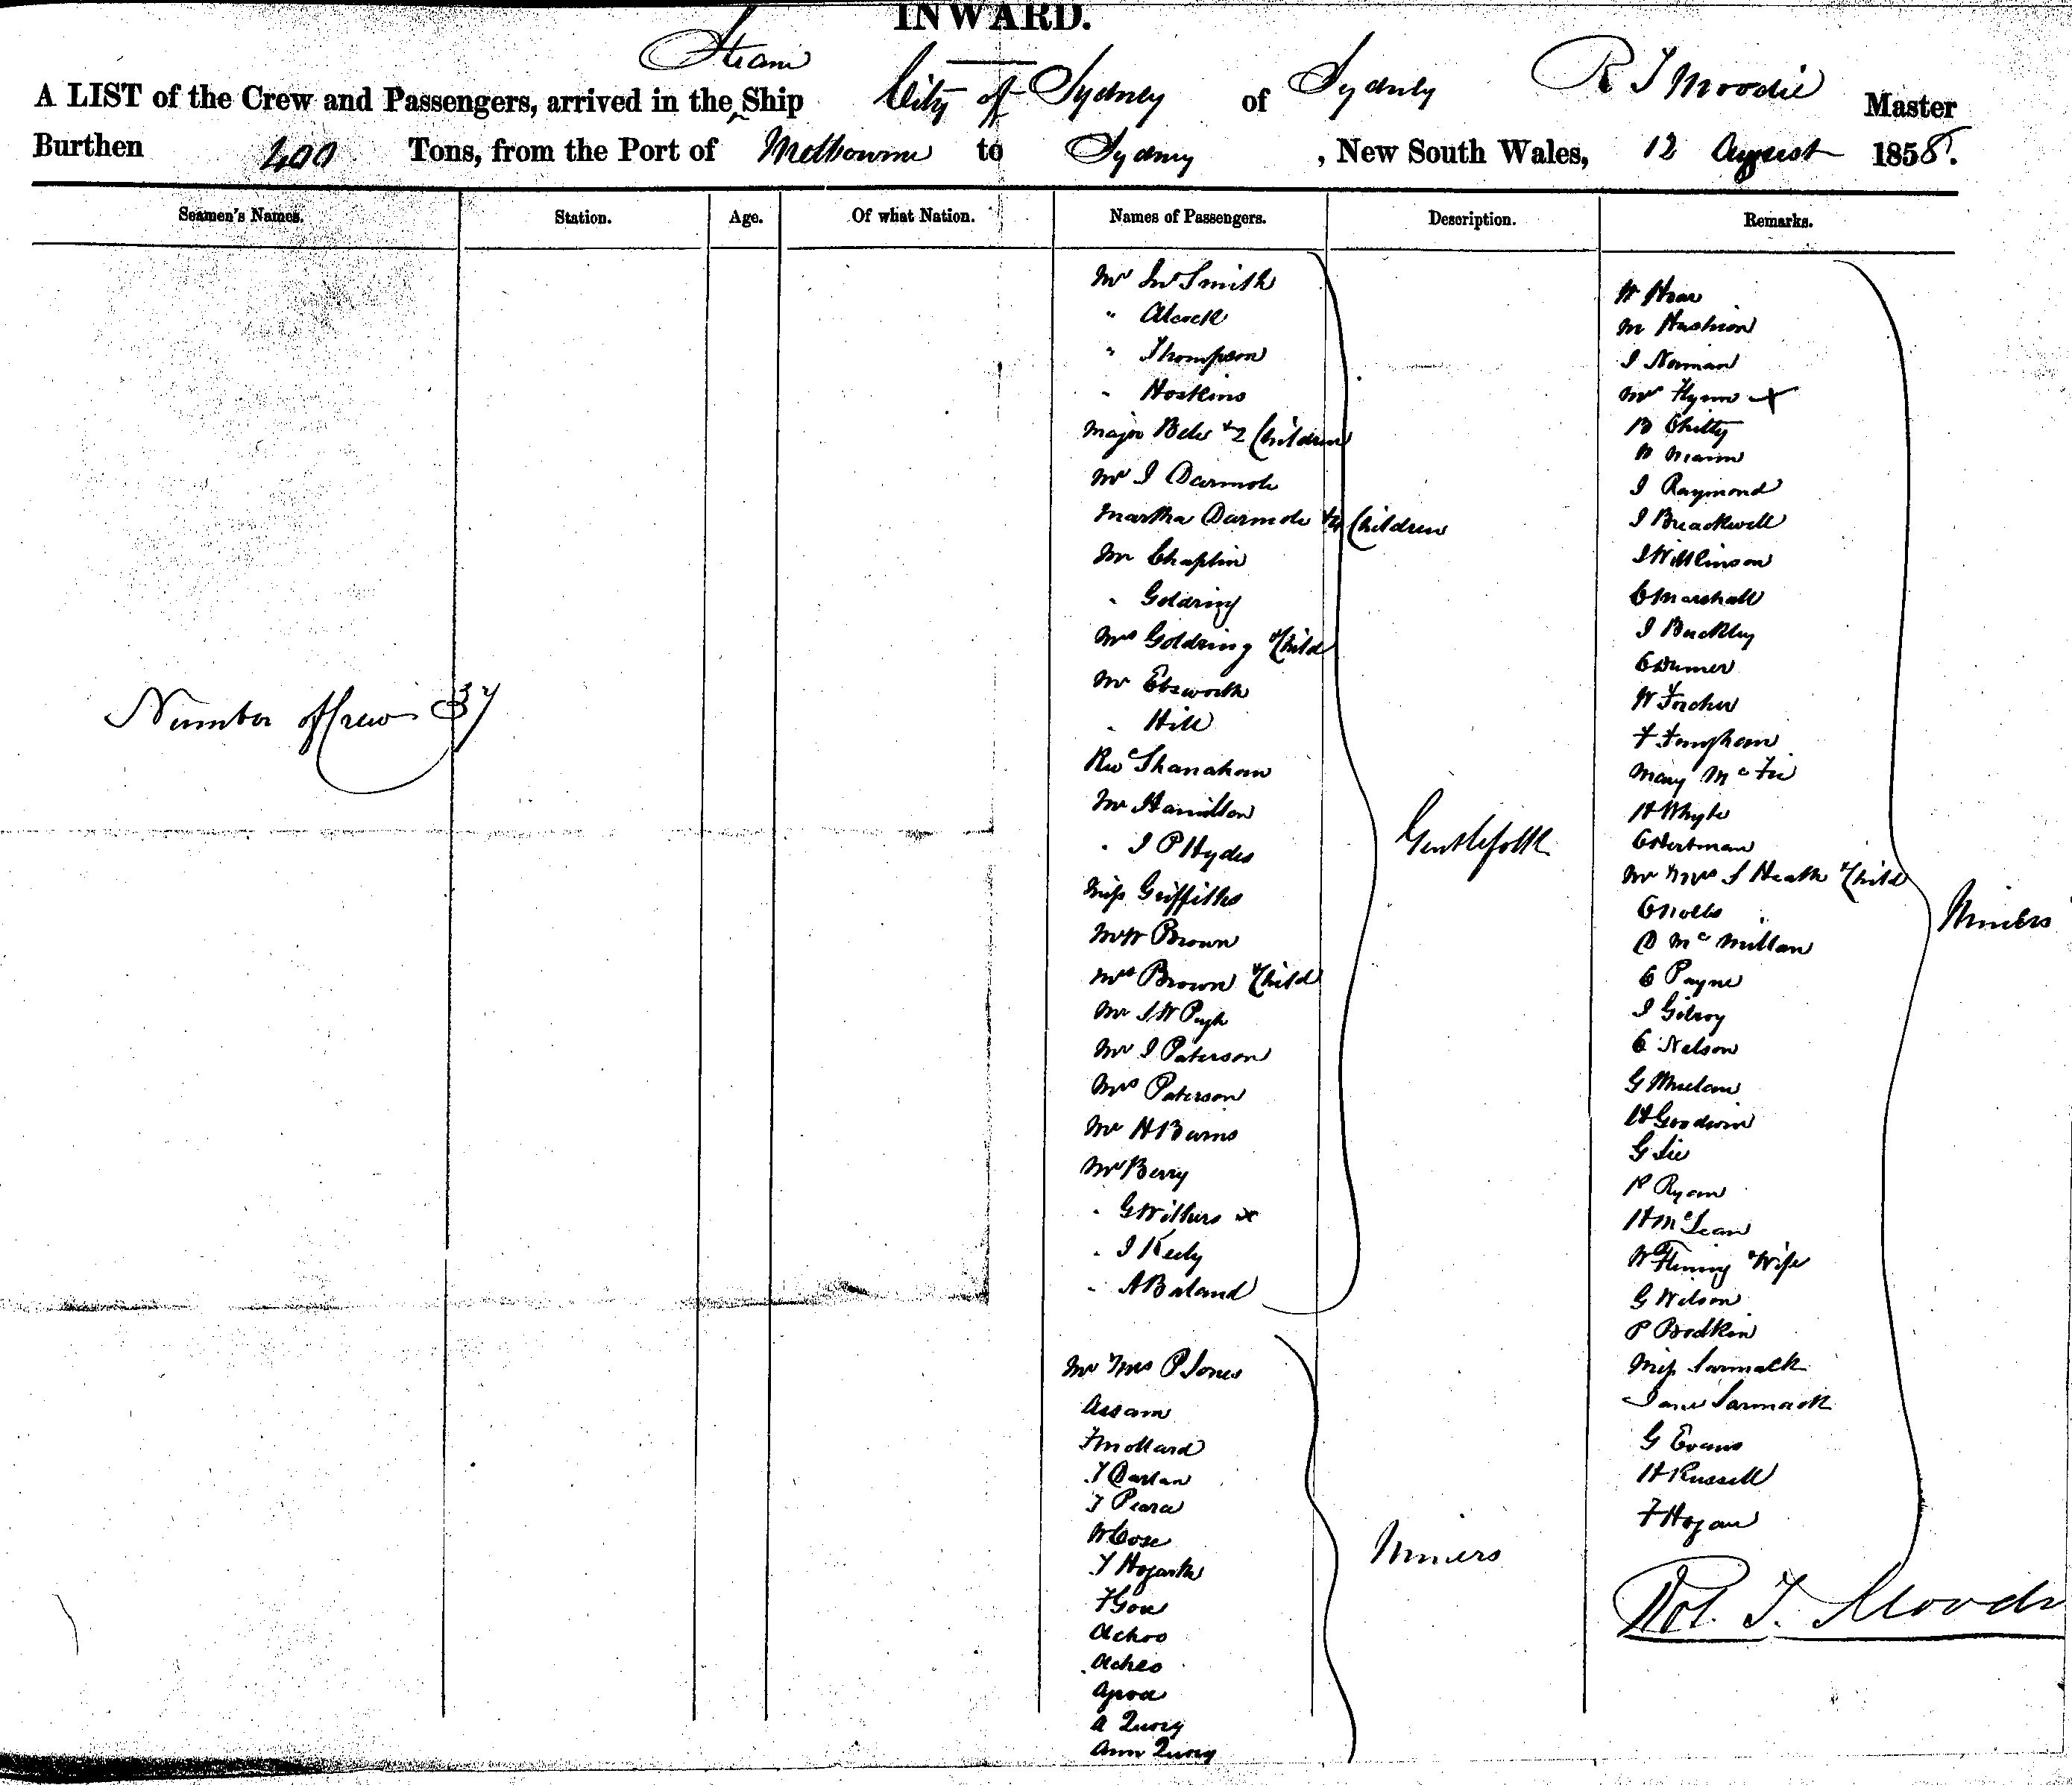 INWARD.
Steam
A LIST of the Crew and Passengers, arrived in the Ship City of Sydney of Sydney R T Moodie Master
Burthen 400 Tons, from the Port of Melbourne to Sydney, New South Wales, 12 August 1858.
Seamen's Names. Station. Age. Of what Nation. Names of Passengers. Description. Remarks.
Number of Crew 37
Mr Jno Smith
" Alcock
" Thompson
" Hoskins
Major Bele & 2 Children
Mr J Darmoh
Martha Darmoh & 4 Children
Mr Chaplin
" Goldring
Mrs Goldring & Child
Mr Ebsworth
" Hill
Revd Shanahan
Mr Hamilton
" J P Hydes
Miss Griffiths
Mr W Brown
Mrs Brown & Child
Mr J W Pugh
Mr J Paterson
Mrs Paterson
Mr H Burns
Mr Berry
" G Withers x
" J Keely
" A Boland
Gentlefolk
Mr & Mrs P Jones
Assam
F Mollard
T Darlan
T Pearce
W Cose
T Hogarth
F Gow
Achoo
Acheo
A Quoey
Ann Quoey
Miners
W Hoar
M Hashion
J Norman
Mr Flynn x
B Chitty
W Mann
J Raymond
J Breackwell
J Wilkinson
C Marshall
J Buckley
W Forcher
F Fangham
Mary McFie
H Whyte
Mr & Mrs J Heath & Child
C Nolls
D McMillan
C Payne
J Gilroy
C Nelson
G Whelan
H Goodwin
G Lee
P Ryan
H McLean
W Fleming & Wife
G Wilson
P Bodkin
Miss Larmack
Jane Larmack
G Evans
H Russell
F Hogan
Miners
Robt. T. Moodie